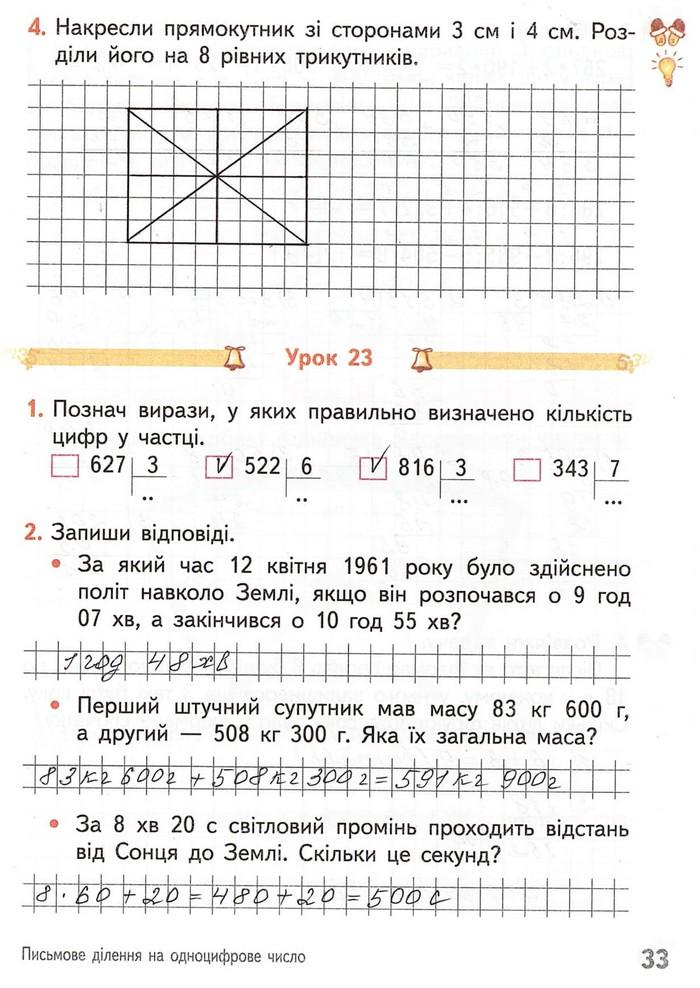 4. Накресли прямокутник зі сторонами 3 см і 4 см. Роз-
діли його на 8 рівних трикутників.
Урок 23
1. Познач вирази, у яких правильно визначено кількість
цифр у частці.
627 3 V 522 6 V 816 3 343 7
.. .. ... ...
2. Запиши відповіді.
• За який час 12 квітня 1961 року було здійснено
політ навколо Землі, якщо він розпочався о 9 год
07 хв, а закінчився о 10 год 55 хв?
1 год 48 хв
• Перший штучний супутник мав масу 83 кг 600 г,
а другий — 508 кг 300 г. Яка їх загальна маса?
83 кг 600 г + 508 кг 300 г = 591 кг 900 г
• За 8 хв 20 с світловий промінь проходить відстань
від Сонця до Землі. Скільки це секунд?
8 · 60 + 20 = 480 + 20 = 500 с
Письмове ділення на одноцифрове число 33